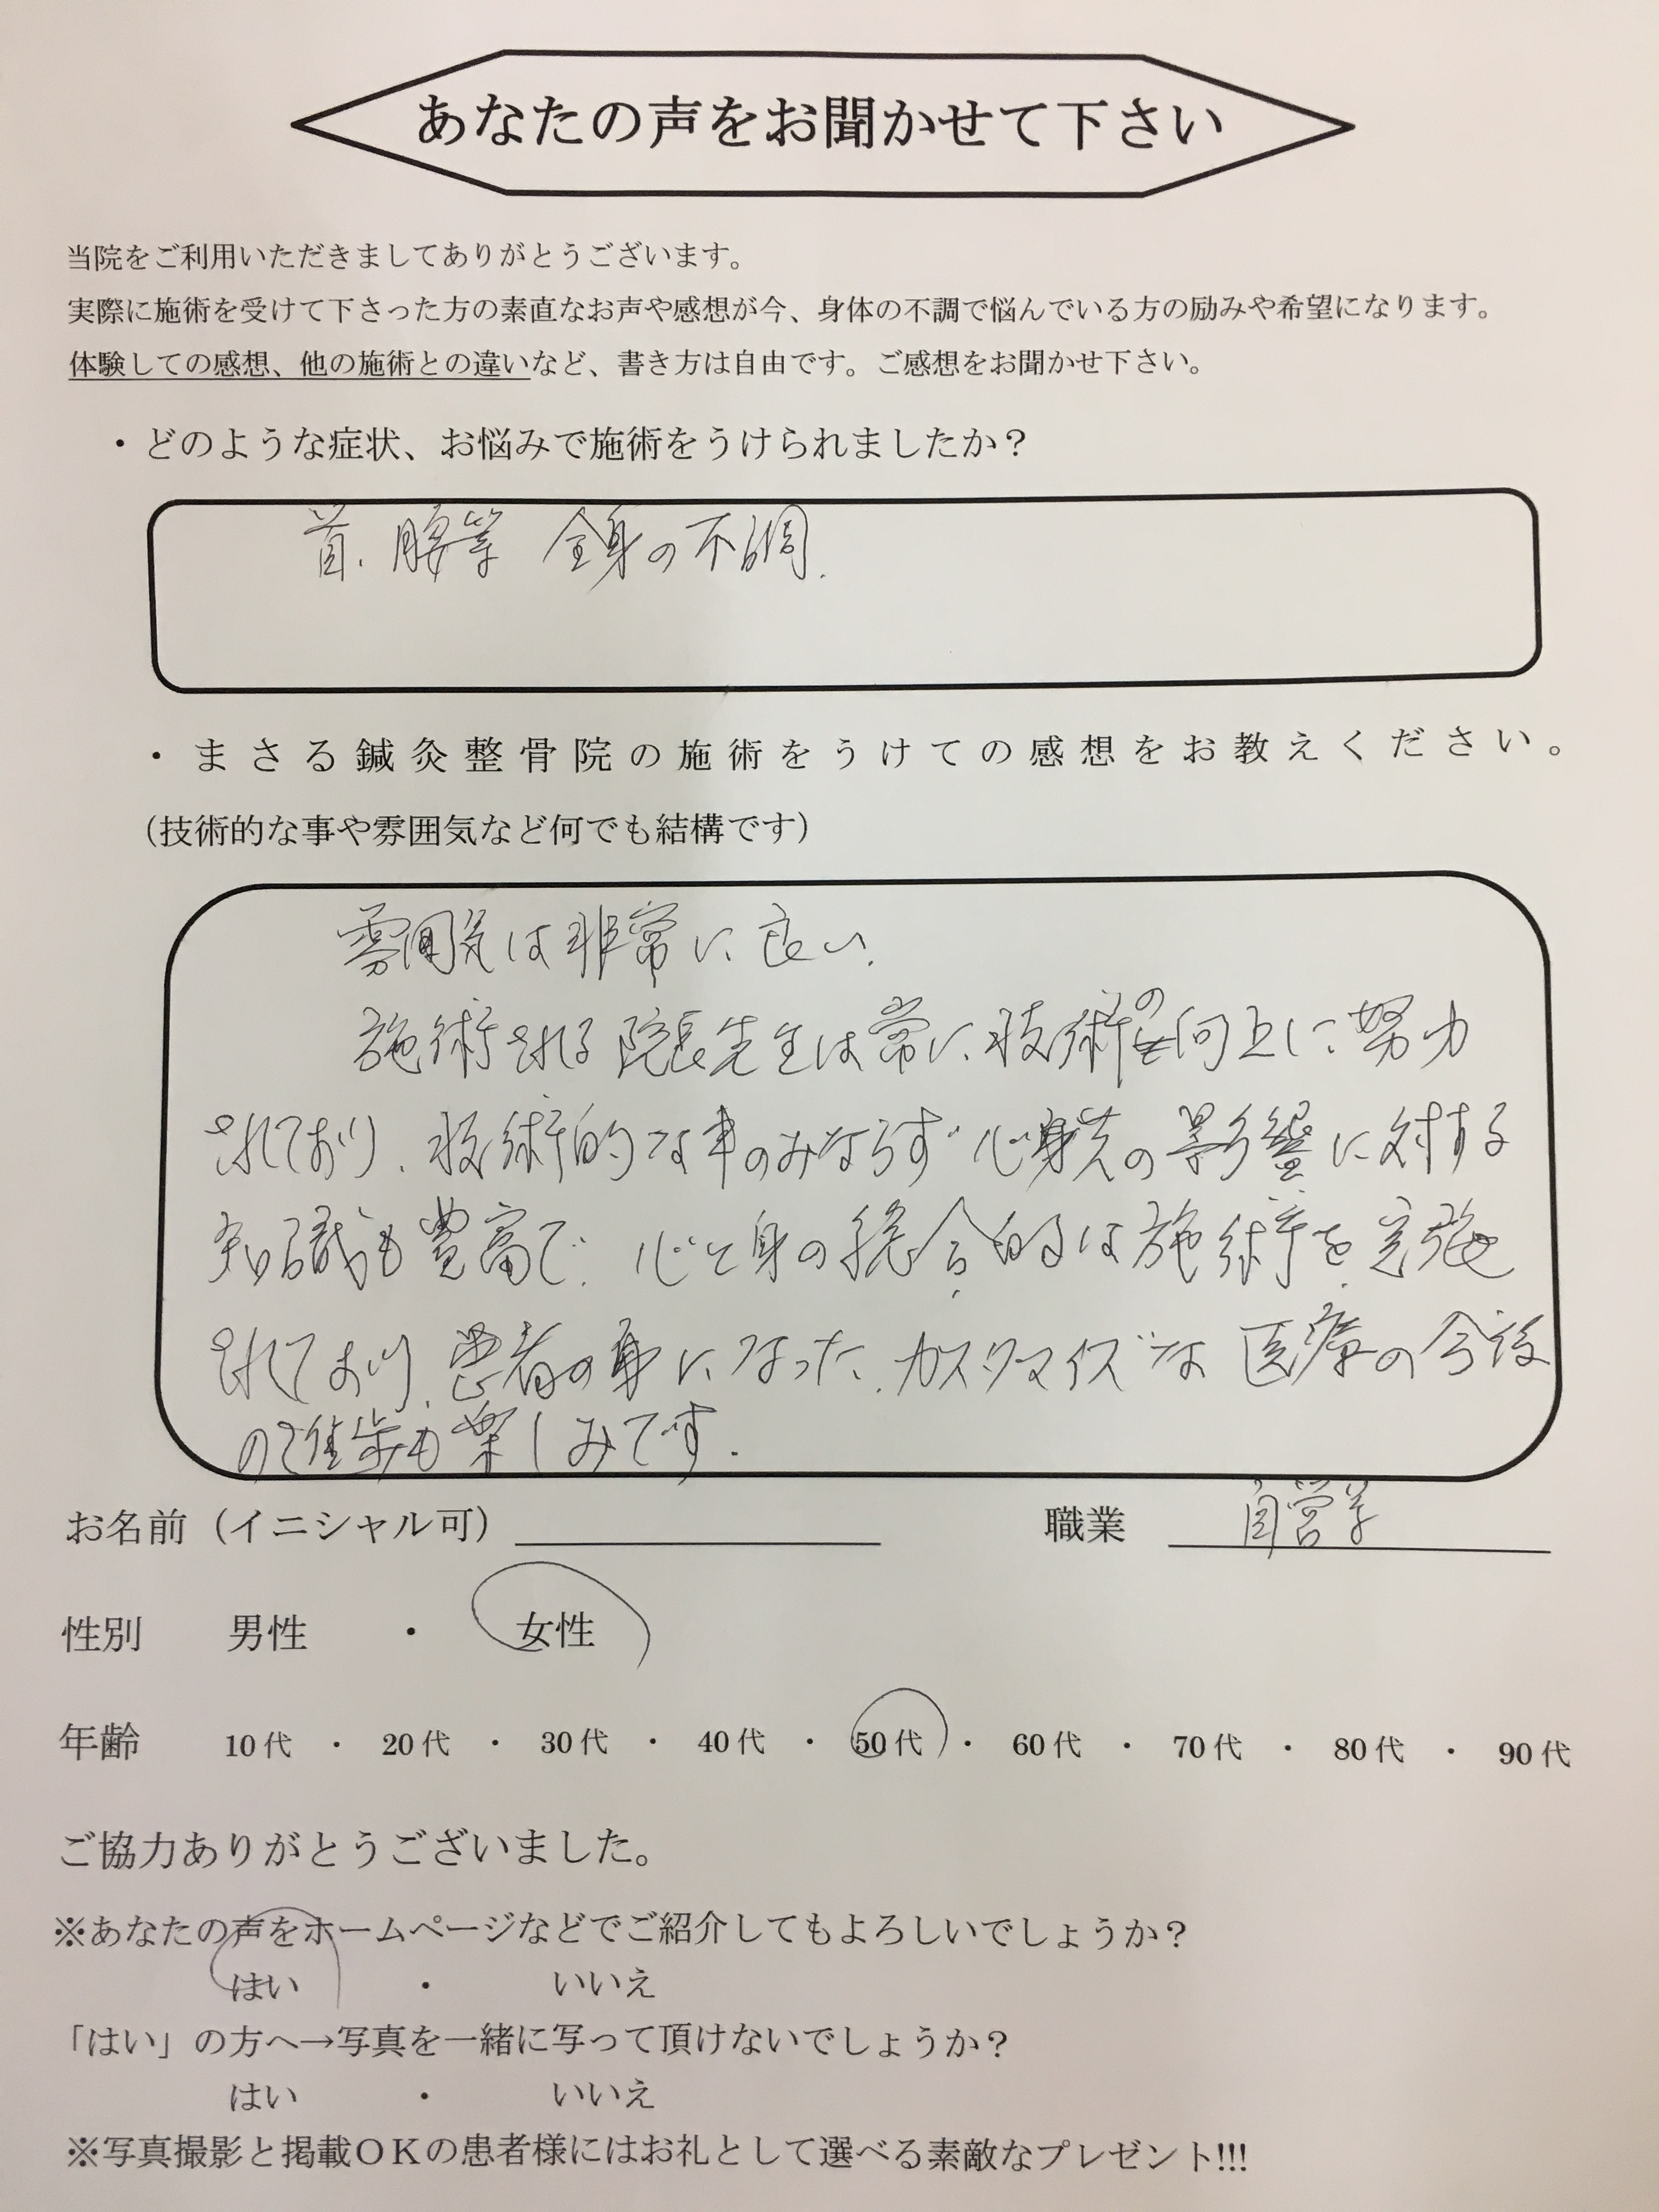 あなたの声をお聞かせて下さい
当院をご利用いただきましてありがとうございます。
実際に施術を受けて下さった方の素直なお声や感想が今、身体の不調で悩んでいる方の励みや希望になります。
体験しての感想、他の施術との違いなど、書き方は自由です。ご感想をお聞かせ下さい。
・どのような症状、お悩みで施術をうけられましたか？
首、腰等 全身の不調.
・まさる鍼灸整骨院の施術をうけての感想をお教えください。
（技術的な事や雰囲気など何でも結構です）
雰囲気は非常に良い.
施術される院長先生は常に技術の向上に努力
されており、技術的な事のみならず心身共の影響に対する
知識も豊富で、心と身の総合的な施術を実施
されており、患者の身になった、カスタマイズな医療の今後
の進歩も楽しみです.
お名前（イニシャル可） 職業 自営業
性別 男性 ・ 女性
年齢 10代 ・ 20代 ・ 30代 ・ 40代 ・ 50代 ・ 60代 ・ 70代 ・ 80代 ・ 90代
ご協力ありがとうございました。
※あなたの声をホームページなどでご紹介してもよろしいでしょうか？
はい ・ いいえ
「はい」の方へ→写真を一緒に写って頂けないでしょうか？
はい ・ いいえ
※写真撮影と掲載ＯＫの患者様にはお礼として選べる素敵なプレゼント!!!